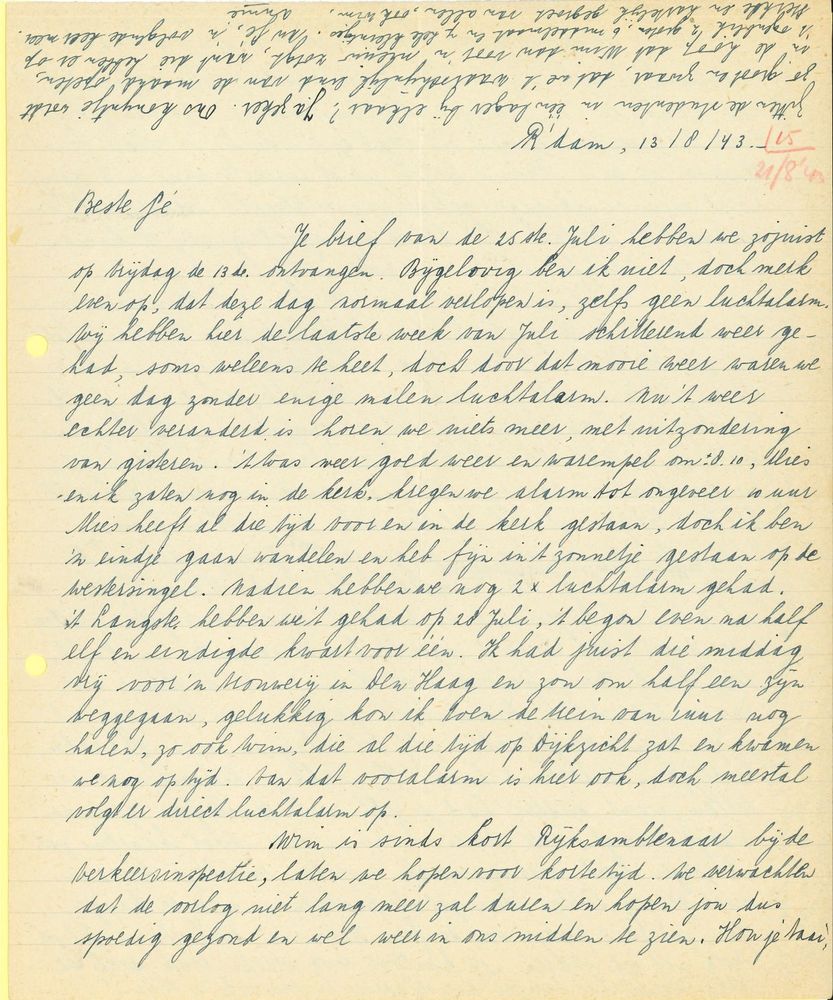 R'dam, 13/8/'43.
15
21/8 '43
Beste Jé
Je brief van de 25ste Juli hebben we zojuist
op vrijdag de 13de ontvangen. Bijgelovig ben ik niet, doch merk
even op, dat deze dag normaal verlopen is, zelfs geen luchtalarm.
Wij hebben hier de laatste week van Juli schitterend weer ge-
had, soms weleens te heet, doch door dat mooie weer waren we
geen dag zonder enige malen luchtalarm. Nu 't weer
echter veranderd is horen we niets meer, met uitzondering
van gisteren. 't Was weer goed weer en warempel om ± 8.10, Mies
en ik zaten nog in de kerk, kregen we alarm tot ongeveer 10 uur
Mies heeft al die tijd voor en in de kerk gestaan, doch ik ben
'n eindje gaan wandelen en heb fijn in 't zonnetje gestaan op de
Westersingel. Nadien hebben we nog 2 x luchtalarm gehad.
't Langste hebben we 't gehad op 28 Juli, 't begon even na half
elf en eindigde kwart voor één. Ik had juist die middag
vrij voor 'n trouwerij in Den Haag en zou om half een zijn
weggegaan, gelukkig kon ik toen de trein van 1 uur nog
halen, zo ook Wim, die al die tijd op Dijkzicht zat en kwamen
we nog op tijd. Van dat vooralarm is hier ook, doch meestal
volgt er direct luchtalarm op.
Wim is sinds kort Rijksambtenaar bij de
verkeersinspectie, laten we hopen voor korte tijd. We verwachten
dat de oorlog niet lang meer zal duren en hopen jou dus
spoedig gezond en wel weer in ons midden te zien. Hou je taai,
Zitten de studenten in één lager bij elkaar? Ja zeker. Ons konijntje wordt
zo groot en zwaar, dat we 't waarschijnlijk eind van de maand opeten,
in de hoop dat Wim dan voor 'n nieuwe zorgt, want die hebben er op
't ogenblik 12 groten, 6 middelmaat en 4 hele kleintjes. Nu Jé, 'n volgende keer meer.
Sterkte en hartelijk gegroet van allen, ook Wim.
Annie